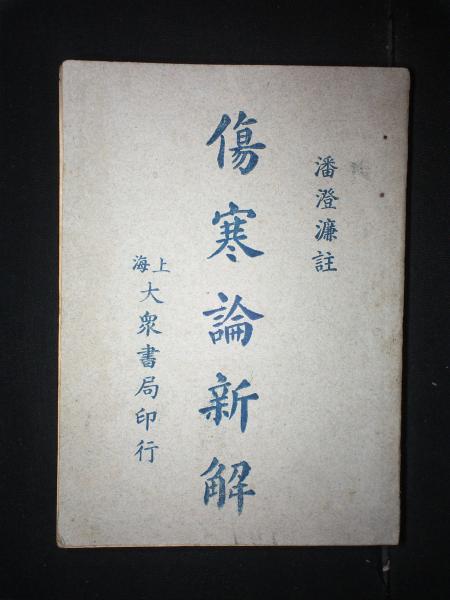 潘澄濂註
傷寒論新解
上海大衆書局印行